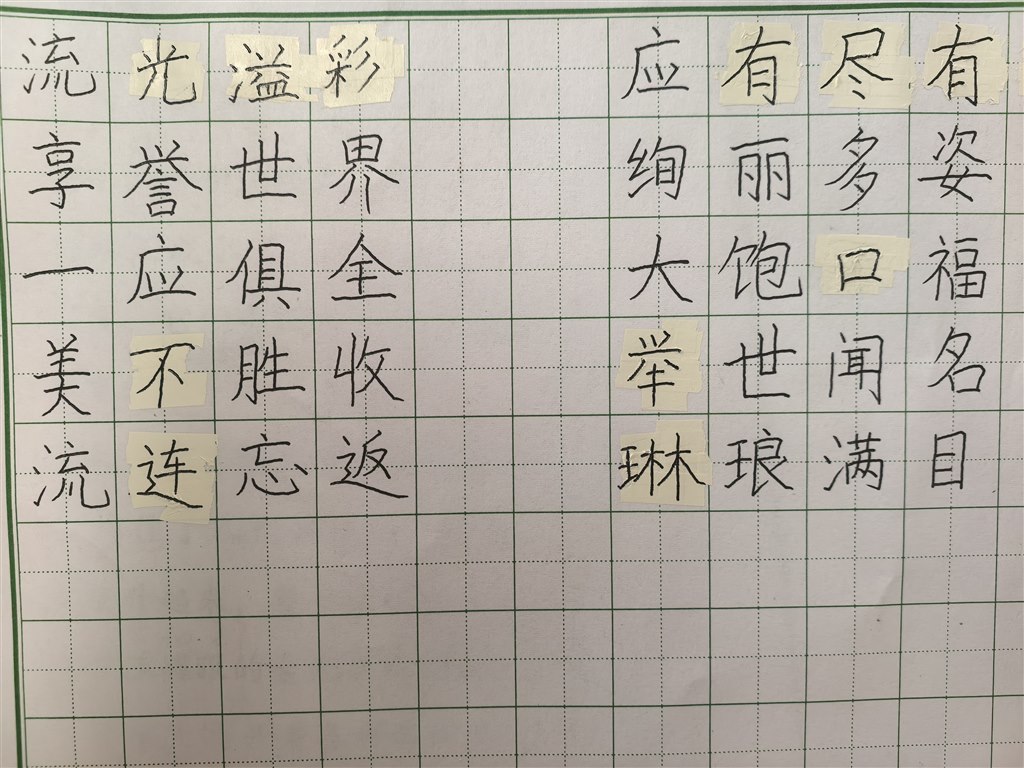 流光溢彩 应有尽有
享誉世界 绚丽多姿
一应俱全 大饱口福
美不胜收 举世闻名
流连忘返 琳琅满目